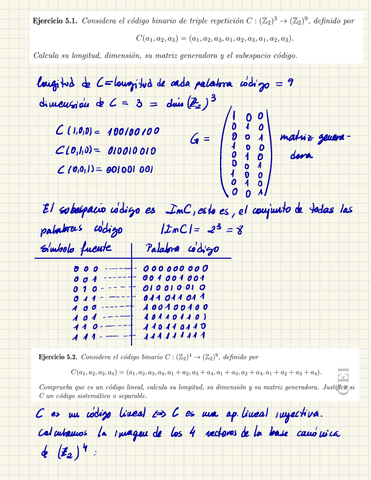 Ejercicio 5.1. Considera el código binario de triple repetición C : (ℤ₂)³ → (ℤ₂)⁹, definido por
C(a₁, a₂, a₃) = (a₁, a₂, a₃, a₁, a₂, a₃, a₁, a₂, a₃).
Calcula su longitud, dimensión, su matriz generadora y el subespacio código.
longitud de C = longitud de cada palabra código = 9
dimensión de C = 3 = dim (ℤ₂)³
C(1,0,0) = 100100100
C(0,1,0) = 010010010
C(0,0,1) = 001001001
G =
1 0 0
0 1 0
0 0 1
1 0 0
0 1 0
0 0 1
1 0 0
0 1 0
0 0 1
matriz genera-
dora
El subespacio código es ImC, esto es, el conjunto de todas las
palabras código |ImC| = 2³ = 8
símbolo fuente Palabra código
000 ----- 000000000
001 ----- 001001001
010 ----- 010010010
011 ----- 011011011
100 ----- 100100100
101 ----- 101101101
110 ----- 110110110
111 ----- 111111111
Ejercicio 5.2. Considera el código binario C : (ℤ₂)⁴ → (ℤ₂)⁹, definido por
C(a₁, a₂, a₃, a₄) = (a₁, a₂, a₃, a₄, a₁ + a₂, a₃ + a₄, a₁ + a₃, a₂ + a₄, a₁ + a₂ + a₃ + a₄).
Comprueba que es un código lineal, calcula su longitud, su dimensión y su matriz generadora. Justifica si
C un código sistemático o separable.
C es un código lineal ⇔ C es una ap. lineal inyectiva.
Calculamos la imagen de los 4 vectores de la base canónica
de (ℤ₂)⁴ :
CEI